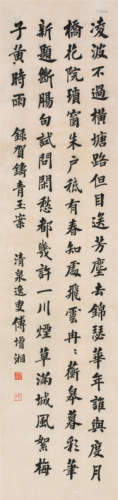 凌波不過橫塘路但目送芳塵去錦瑟華年誰與度月
橋花院瑣窗朱戶祗有春知處飛雲冉冉蘅皋暮彩筆
新題斷腸句試問閒愁都幾許一川煙草滿城風絮梅
子黃時雨　錄賀鑄青玉案　清泉逸叟傅增湘